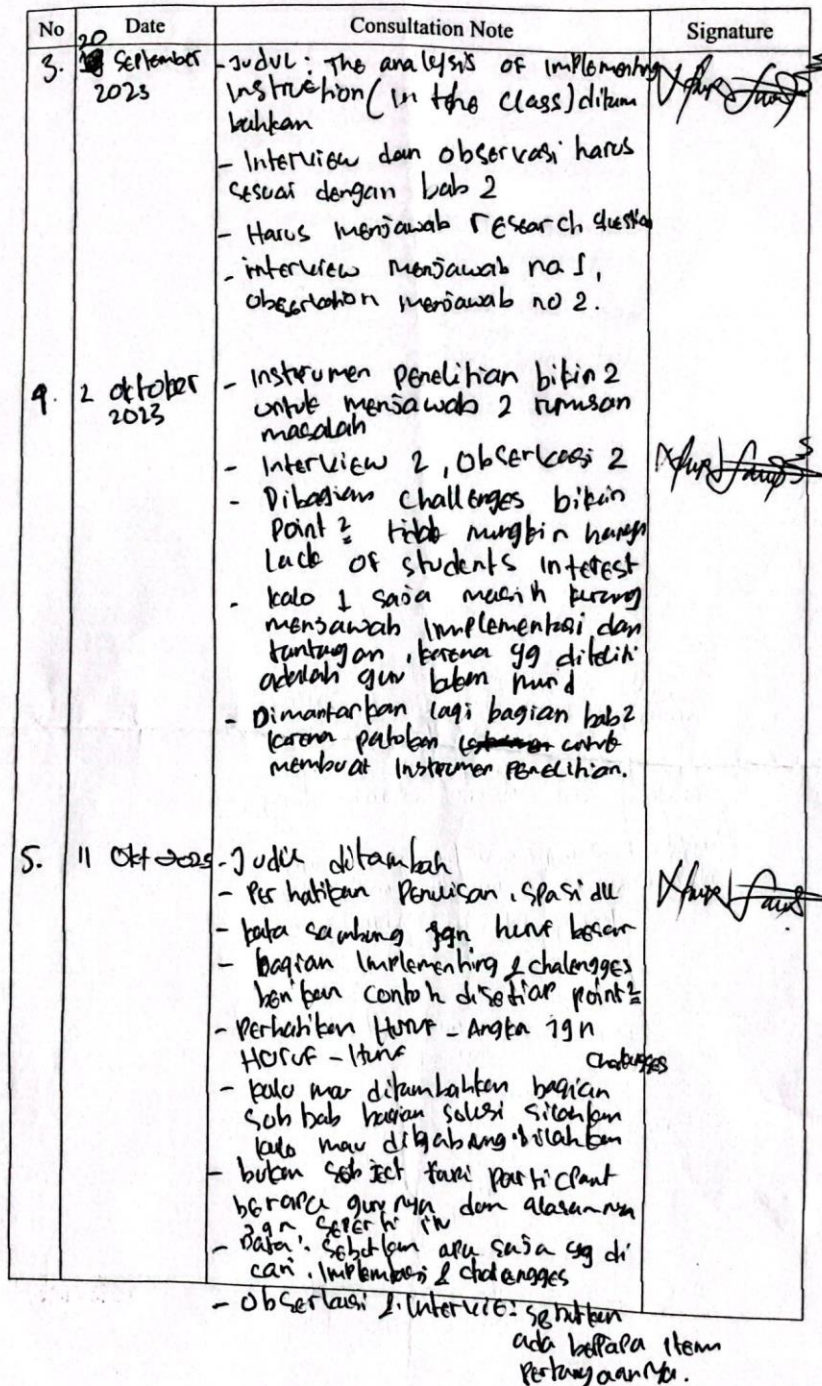 No Date Consultation Note Signature
3. 20 September 2023
- Judul : The analysis of implementing
instruction (in the class) ditam
bahkan
- Interview dan observasi harus
sesuai dengan bab 2
- Harus menjawab research question
- interview menjawab no 1,
observation menjawab no 2.
4. 2 Oktober 2023
- Instrumen penelitian bikin 2
untuk menjawab 2 rumusan
masalah
- Interview 2, Observasi 2
- Dibagian challenges bikin
point2 tidak mungkin hanya
lack of students interest
- kalo 1 saja masih kurang
menjawab implementasi dan
tantangan, karena yg diteliti
adalah guru bukan murid
- Dimantapkan lagi bagian bab2
karena patokan untuk
membuat instrumen penelitian.
5. 11 Okt
- Judul ditambah
- Perhatikan penulisan, spasi dll
- kata sambung jgn huruf besar
- bagian Implementing & chalengges
berikan contoh disetiap point2
- Perhatikan Huruf - Angka jgn
Huruf - Huruf
chalengges
- kalo mau ditambahkan bagian
sub bab bagian solusi silahkan
kalo mau digabung silahkan
- bukan subject tapi participant
berapa gurunya dan alasannya
jgn seperti itu
- Data : Sebutkan apa saja yg di
cari. Implementasi & chalengges
- Observasi & interview : sebutkan
ada berapa item
pertanyaannya.